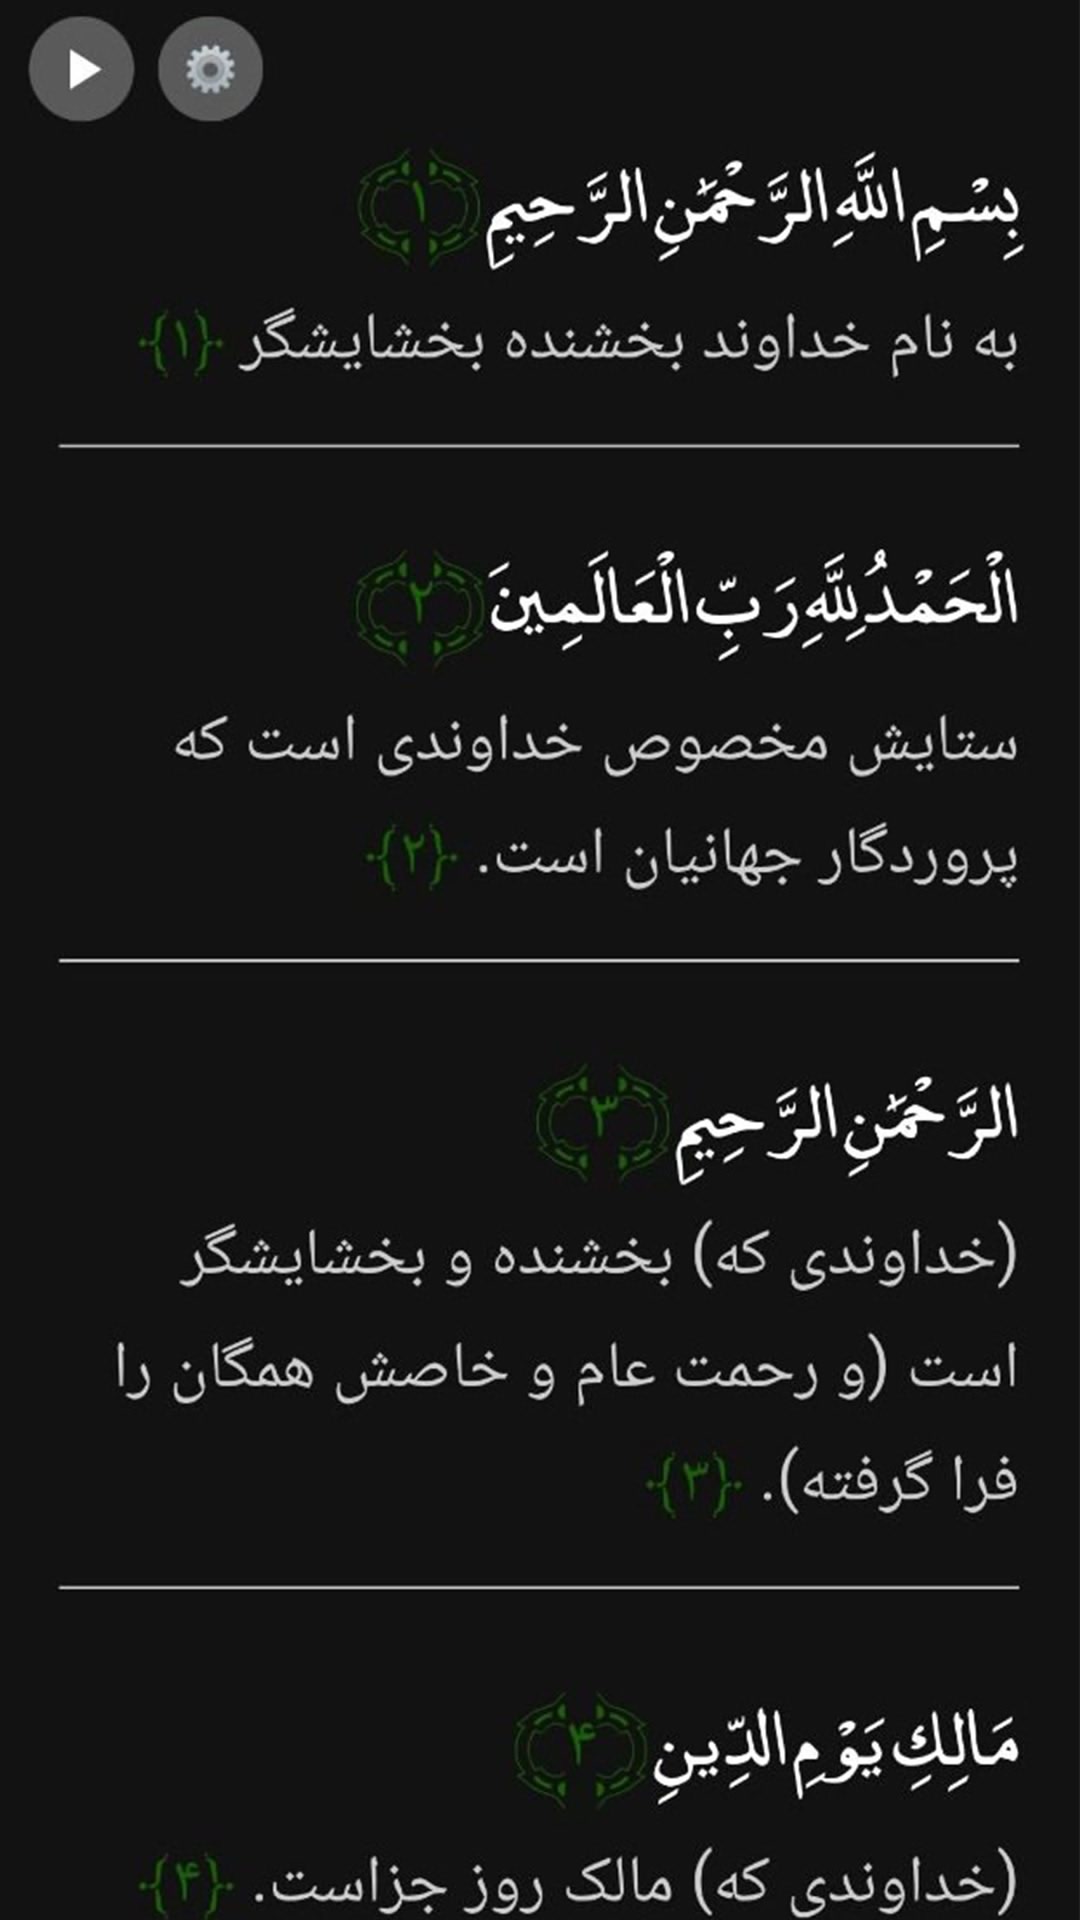 بِسْمِ اللَّهِ الرَّحْمَٰنِ الرَّحِيمِ ﴿۱﴾
به نام خداوند بخشنده بخشایشگر {۱}
الْحَمْدُ لِلَّهِ رَبِّ الْعَالَمِينَ ﴿۲﴾
ستایش مخصوص خداوندی است که
پروردگار جهانیان است. {۲}
الرَّحْمَٰنِ الرَّحِيمِ ﴿۳﴾
(خداوندی که) بخشنده و بخشایشگر
است (و رحمت عام و خاصش همگان را
فرا گرفته). {۳}
مَالِكِ يَوْمِ الدِّينِ ﴿۴﴾
(خداوندی که) مالک روز جزاست. {۴}